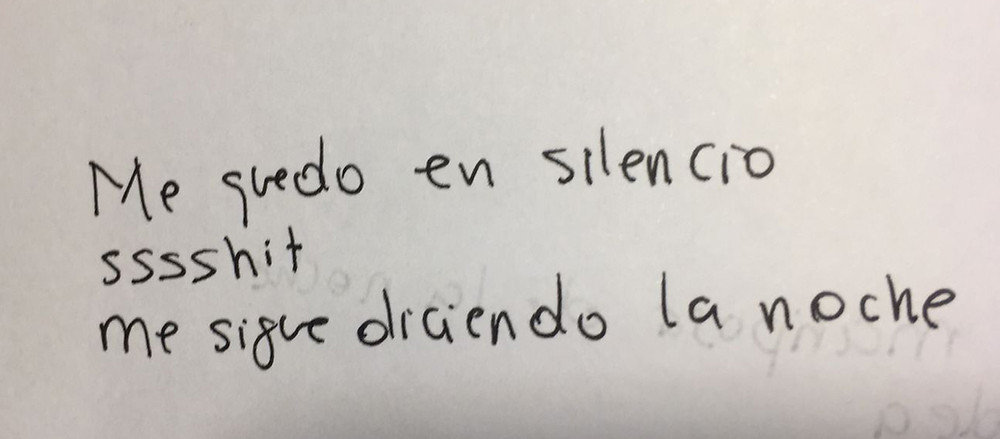 Me quedo en silencio
sssshit
me sigue diciendo la noche